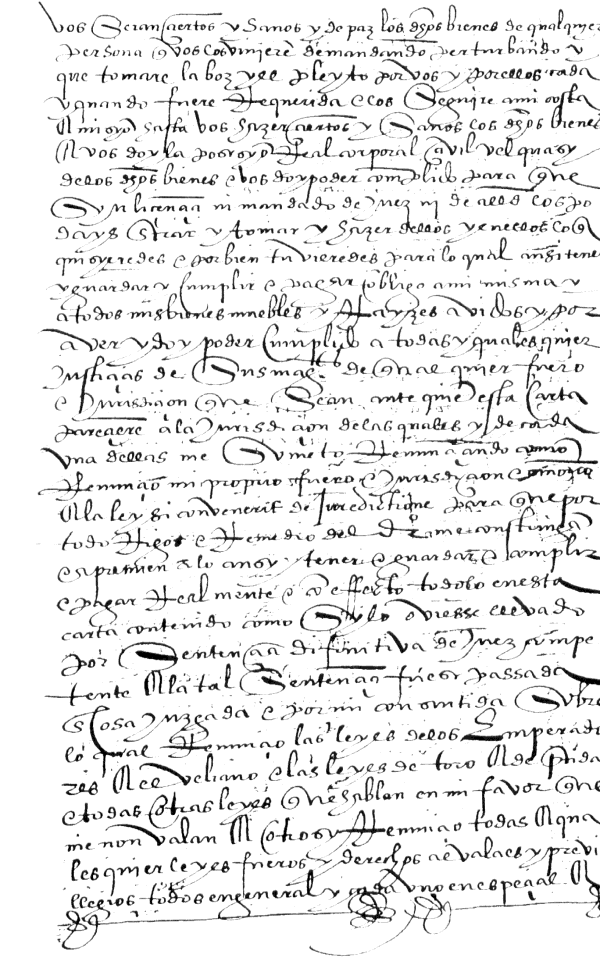 vos seran ciertos y sanos y de paz los dhos bienes de qualquier
persona q vos los viniere demandando perturbando y
que tomare la boz y el pleyto por vos y por ellos cada
y quando fuere Requerida e los seguire a mi costa
A mision hasta vos hazer ciertos y sanos los dhos bienes
A vos doy la posesyon Real corporal çivil vel quasy
de los dhos bienes e vos doy poder complido para que
syn liçençia ni mandado de Juez ni de allde los po
days entrar y tomar y hazer dellos y en ellos lo q
quisyeredes e por bien tuvieredes para lo qual ansi tener
y guardar y cumplir e pagar obligo a mi misma y
a todos mis bienes muebles y Rayzes avidos y por
aver y doy poder cumplido a todas y qualesquier
Justiçias de Sus mags de qual quier fuero
e Jurisdiçion que sean ante quien esta carta
paresçiere a la Jurisdiçion de las quales y de cada
una dellas me someto Renunçiando como
Renunçio mi propio fuero e Jurisdiçion e
A la ley si convenerit de Jurisdictione para que por
todo Rigor e Remedio del dro me constringan
e apremien a lo ansy tener e guardar e complir
e pagar Realmente e con effecto todo lo en esta
carta contenido como sy lo oviesse llevado
por sentençia difinitiva de Juez compe
tente A la tal sentençia fuese passada
en cosa Juzgada e por mi consentida Sobre
lo qual Renunçio las leyes de los Emperado
res A el veliano e las leyes de toro A de ptida
e todas otras leyes que hablan en mi favor que
me non valan A otrosy Renunçio todas A qua
les quier leyes fueros y derechos avales y previ
llegios todos en general y cada uno en espeçial A